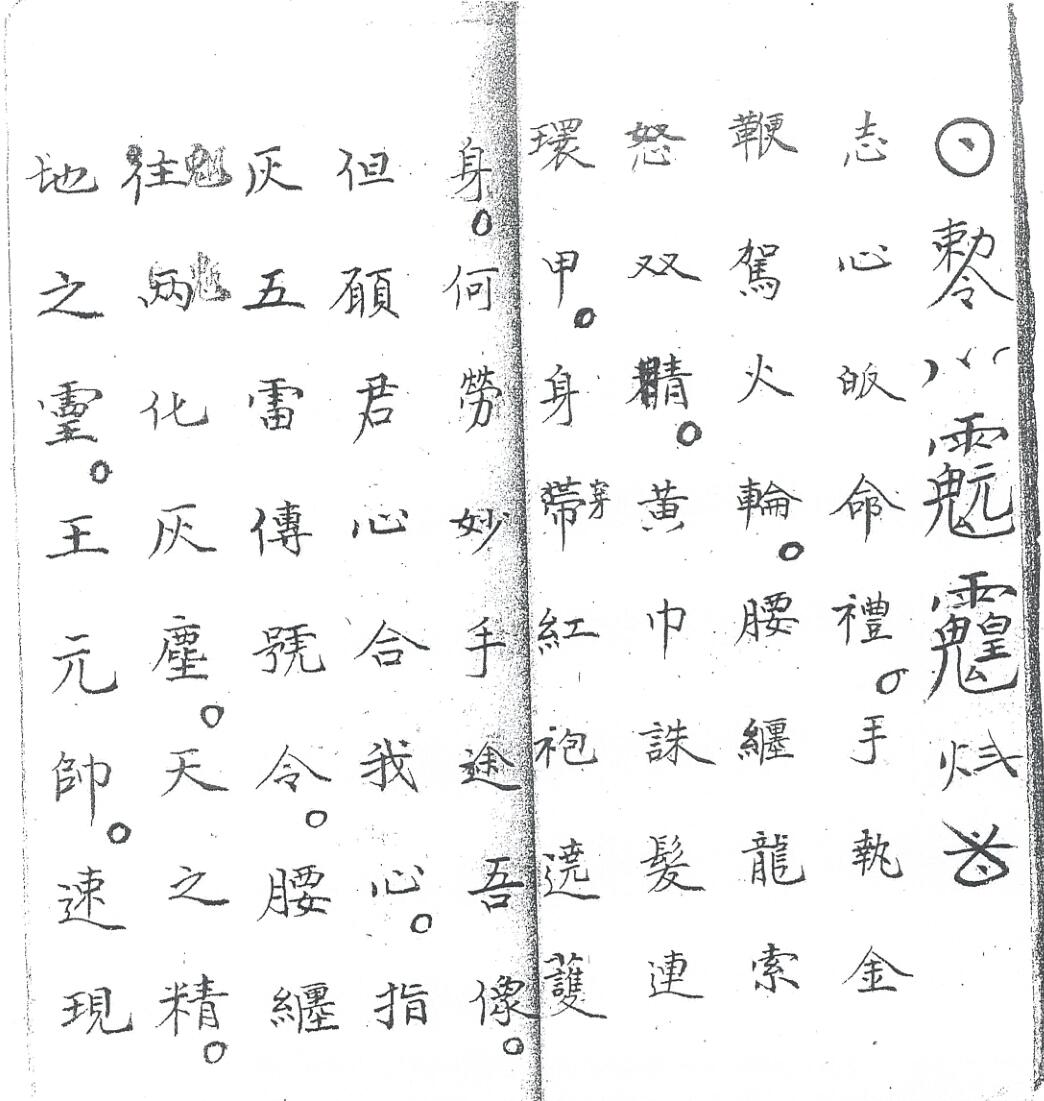 勅令
志心皈命禮。手執金
鞭駕火輪。腰纏龍索
怒双睛。黃巾誅髮連
環甲。身帶穿紅袍遶護
身。何勞妙手塗吾像。
但願君心合我心。指
灰五雷傳號令。腰纏
往魁兩魁化灰塵。天之精。
地之靈。王元帥。速現